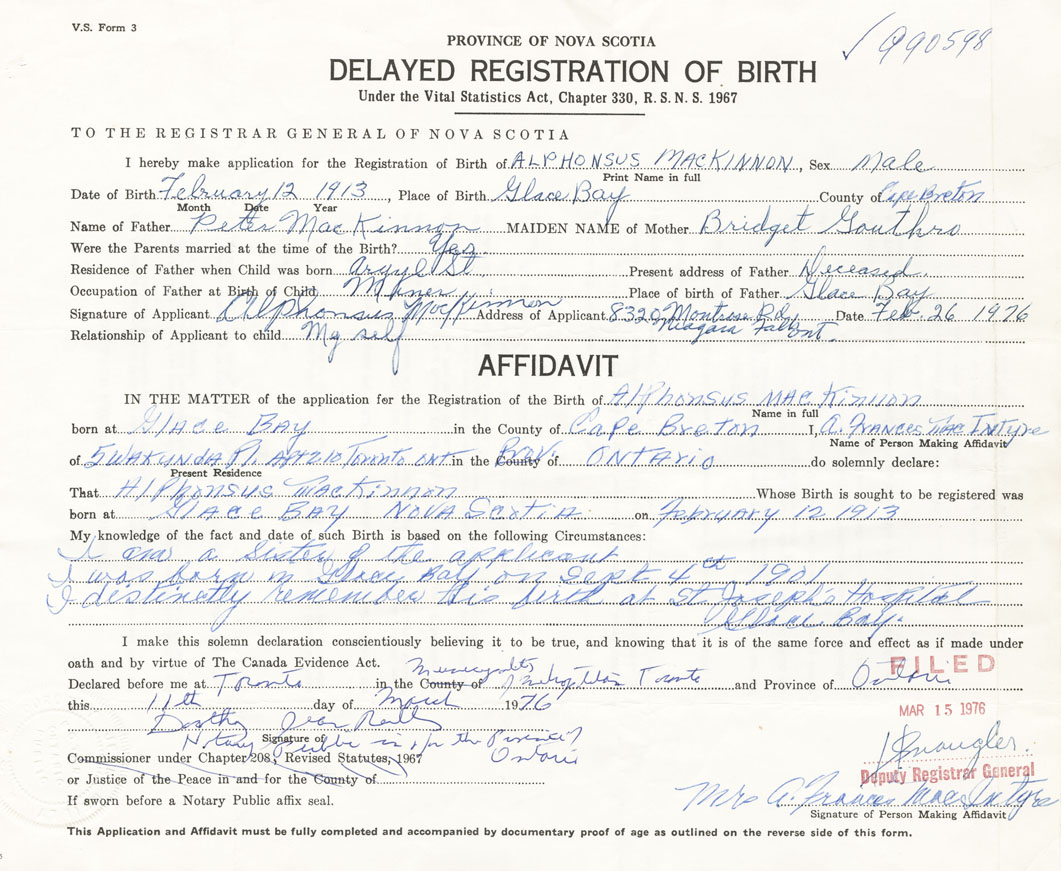 V.S. Form 3
PROVINCE OF NOVA SCOTIA
990598
DELAYED REGISTRATION OF BIRTH
Under the Vital Statistics Act, Chapter 330, R. S. N. S. 1967
TO THE REGISTRAR GENERAL OF NOVA SCOTIA
I hereby make application for the Registration of Birth of ALPHONSUS MACKINNON, Sex Male
Print Name in full
Date of Birth February 12 1913, Place of Birth Glace Bay County of Cape Breton
Month Date Year
Name of Father Peter MacKinnon MAIDEN NAME of Mother Bridget Gouthro
Were the Parents married at the time of the Birth? Yes
Residence of Father when Child was born Argyl St. Present address of Father Deceased.
Occupation of Father at Birth of Child Miner Place of birth of Father Glace Bay
Signature of Applicant Alphonsus MacKinnon Address of Applicant 8320 Montrose Rd, Niagara Fall Ont. Date Feb. 26 1976
Relationship of Applicant to child My self
AFFIDAVIT
IN THE MATTER of the application for the Registration of the Birth of Alphonsus MacKinnon
Name in full
born at Glace Bay in the County of Cape Breton I, A. Frances MacIntyre
Name of Person Making Affidavit
of 5 Wakunda Pl. Apt 210 Toronto Ont in the County Prov. of ONTARIO do solemnly declare:
Present Residence
That Alphonsus MacKinnon Whose Birth is sought to be registered was
born at Glace Bay Nova Scotia on February 12 1913
My knowledge of the fact and date of such Birth is based on the following Circumstances:
I am a Sister of the applicant
I was born in Glace Bay on Sept 4th 1901
I distinctly remember this birth at St Joseph's Hospital
Glace Bay.
I make this solemn declaration conscientiously believing it to be true, and knowing that it is of the same force and effect as if made under
oath and by virtue of The Canada Evidence Act.
FILED
Declared before me at Toronto in the County of Municipality Metropolitan Toronto and Province of Ontario
this 11th day of March 1976
MAR 15 1976
Dorothy Jean
Signature of
Notary Public in & for the Province of Ontario
Commissioner under Chapter 208, Revised Statutes, 1967
Deputy Registrar General
or Justice of the Peace in and for the County of
Mrs A. Frances MacIntyre
If sworn before a Notary Public affix seal.
Signature of Person Making Affidavit
This Application and Affidavit must be fully completed and accompanied by documentary proof of age as outlined on the reverse side of this form.